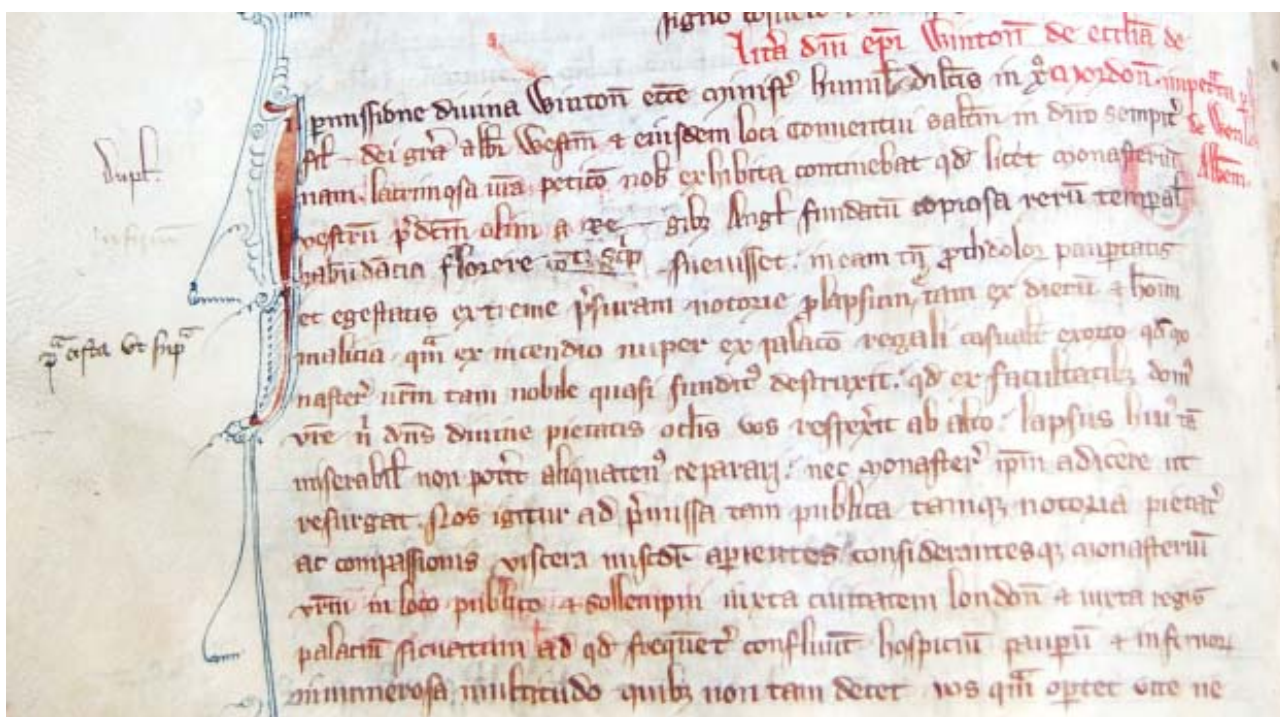 signo
lrã dñi epĩ Wintoñ de eccl̃ia de
Mordoñ. impet̃ta p̲
de Wenl
Abbem.
I p̲missione divina Wintoñ ecce minist᷑ humil̃ dilc̃is in xº
fil dei grã abb̃i Westm̃ & eiusdem loci conventui salt̃m in dño sempit᷑
nam. lacrimosa ur̃a petic̃o nob̃ exhibita continebat qd̃ licet monasteriũ
vestrũ p̃dc̃m olim a re gibȝ Angl̃ fundatũ copiosa rerũ tempal̃
habũdãcia florere fuevisset. in eam tñ paup̲tatis
et egestatis extreme p̃ssuram notorie p̲lapsum, tam ex dierũ & hõim
malicia qm̃ ex incendio nuper ex palaco regali casualit̃ exorto qd̃ mo
naster᷑ ur̃m tam nobile quasi fundit᷒ destruxit. qd̃ ex facultatibȝ dom᷒
vr̃e ñ dñs divine pietatis oclis vos respex̃it ab alto. lapsus hui᷒ tã
miserabil̃ non pot̃it aliquaten᷒ reparari. nec monaster᷑ ip̃m adicere ut
resurgat. Nos igitur ad p̃missa tam publica tamqȝ notoria pietat᷑
ac compassionis viscera misc̃dit̃ ap̲ientes considerantesqȝ monasteriũ
vr̃m in loco publico & sollempni iuxta civitatem londoñ & iuxta regis
palaciũ situatum ad qd̃ frequẽt᷑ confluũt hospiciũ paup̲ũ & infirmoꝝ
innumerosa multitudo quibȝ non tam decet vos qm̃ oportet vite ne
dupl̃.
p̃ cista ut sup̃ᵃ